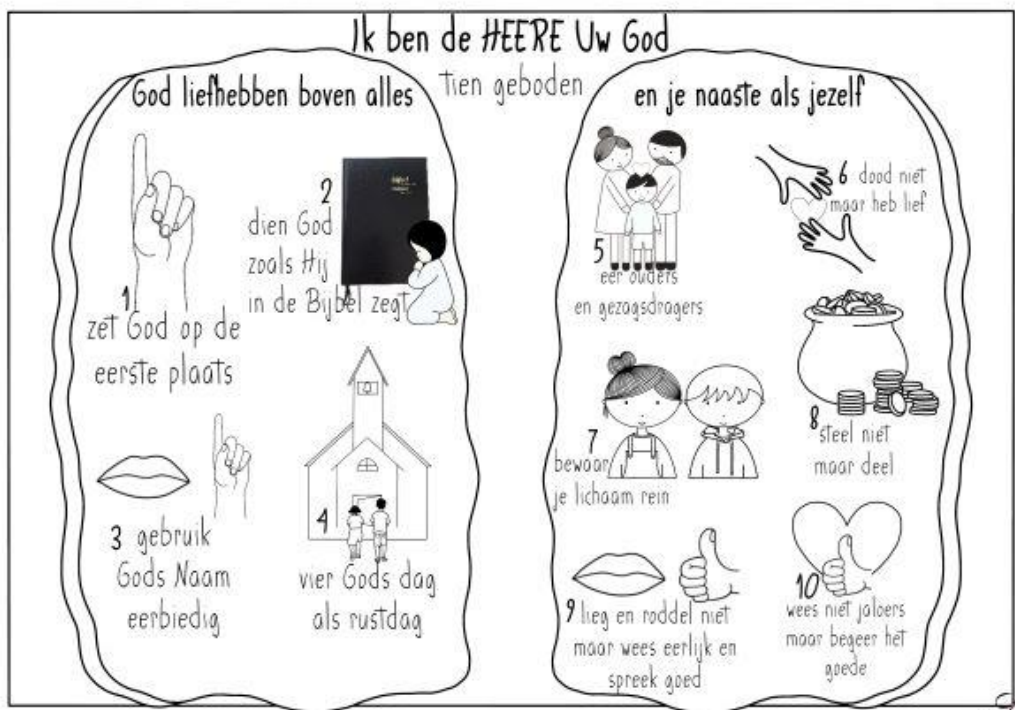 Ik ben de HEERE Uw God
Tien geboden
God liefhebben boven alles
1
zet God op de
eerste plaats
2
dien God
zoals Hij
in de Bijbel zegt
Bijbel
3 gebruik
Gods Naam
eerbiedig
4
vier Gods dag
als rustdag
en je naaste als jezelf
5
eer ouders
en gezagsdragers
6 dood niet
maar heb lief
7
bewaar
je lichaam rein
8
steel niet
maar deel
9 lieg en roddel niet
maar wees eerlijk en
spreek goed
10
wees niet jaloers
maar begeer het
goede